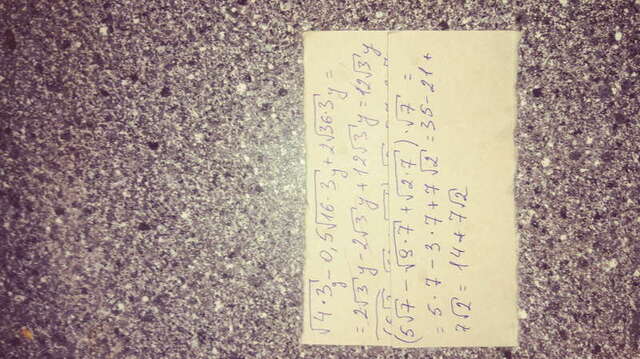 √4·3y - 0,5√16·3y + 2√36·3y =
= 2√3y - 2√3y + 12√3y = 12√3y
(5√7 - √9·7 + √2·7)·√7 =
= 5·7 - 3·7 + 7√2 = 35 - 21 +
7√2 = 14 + 7√2